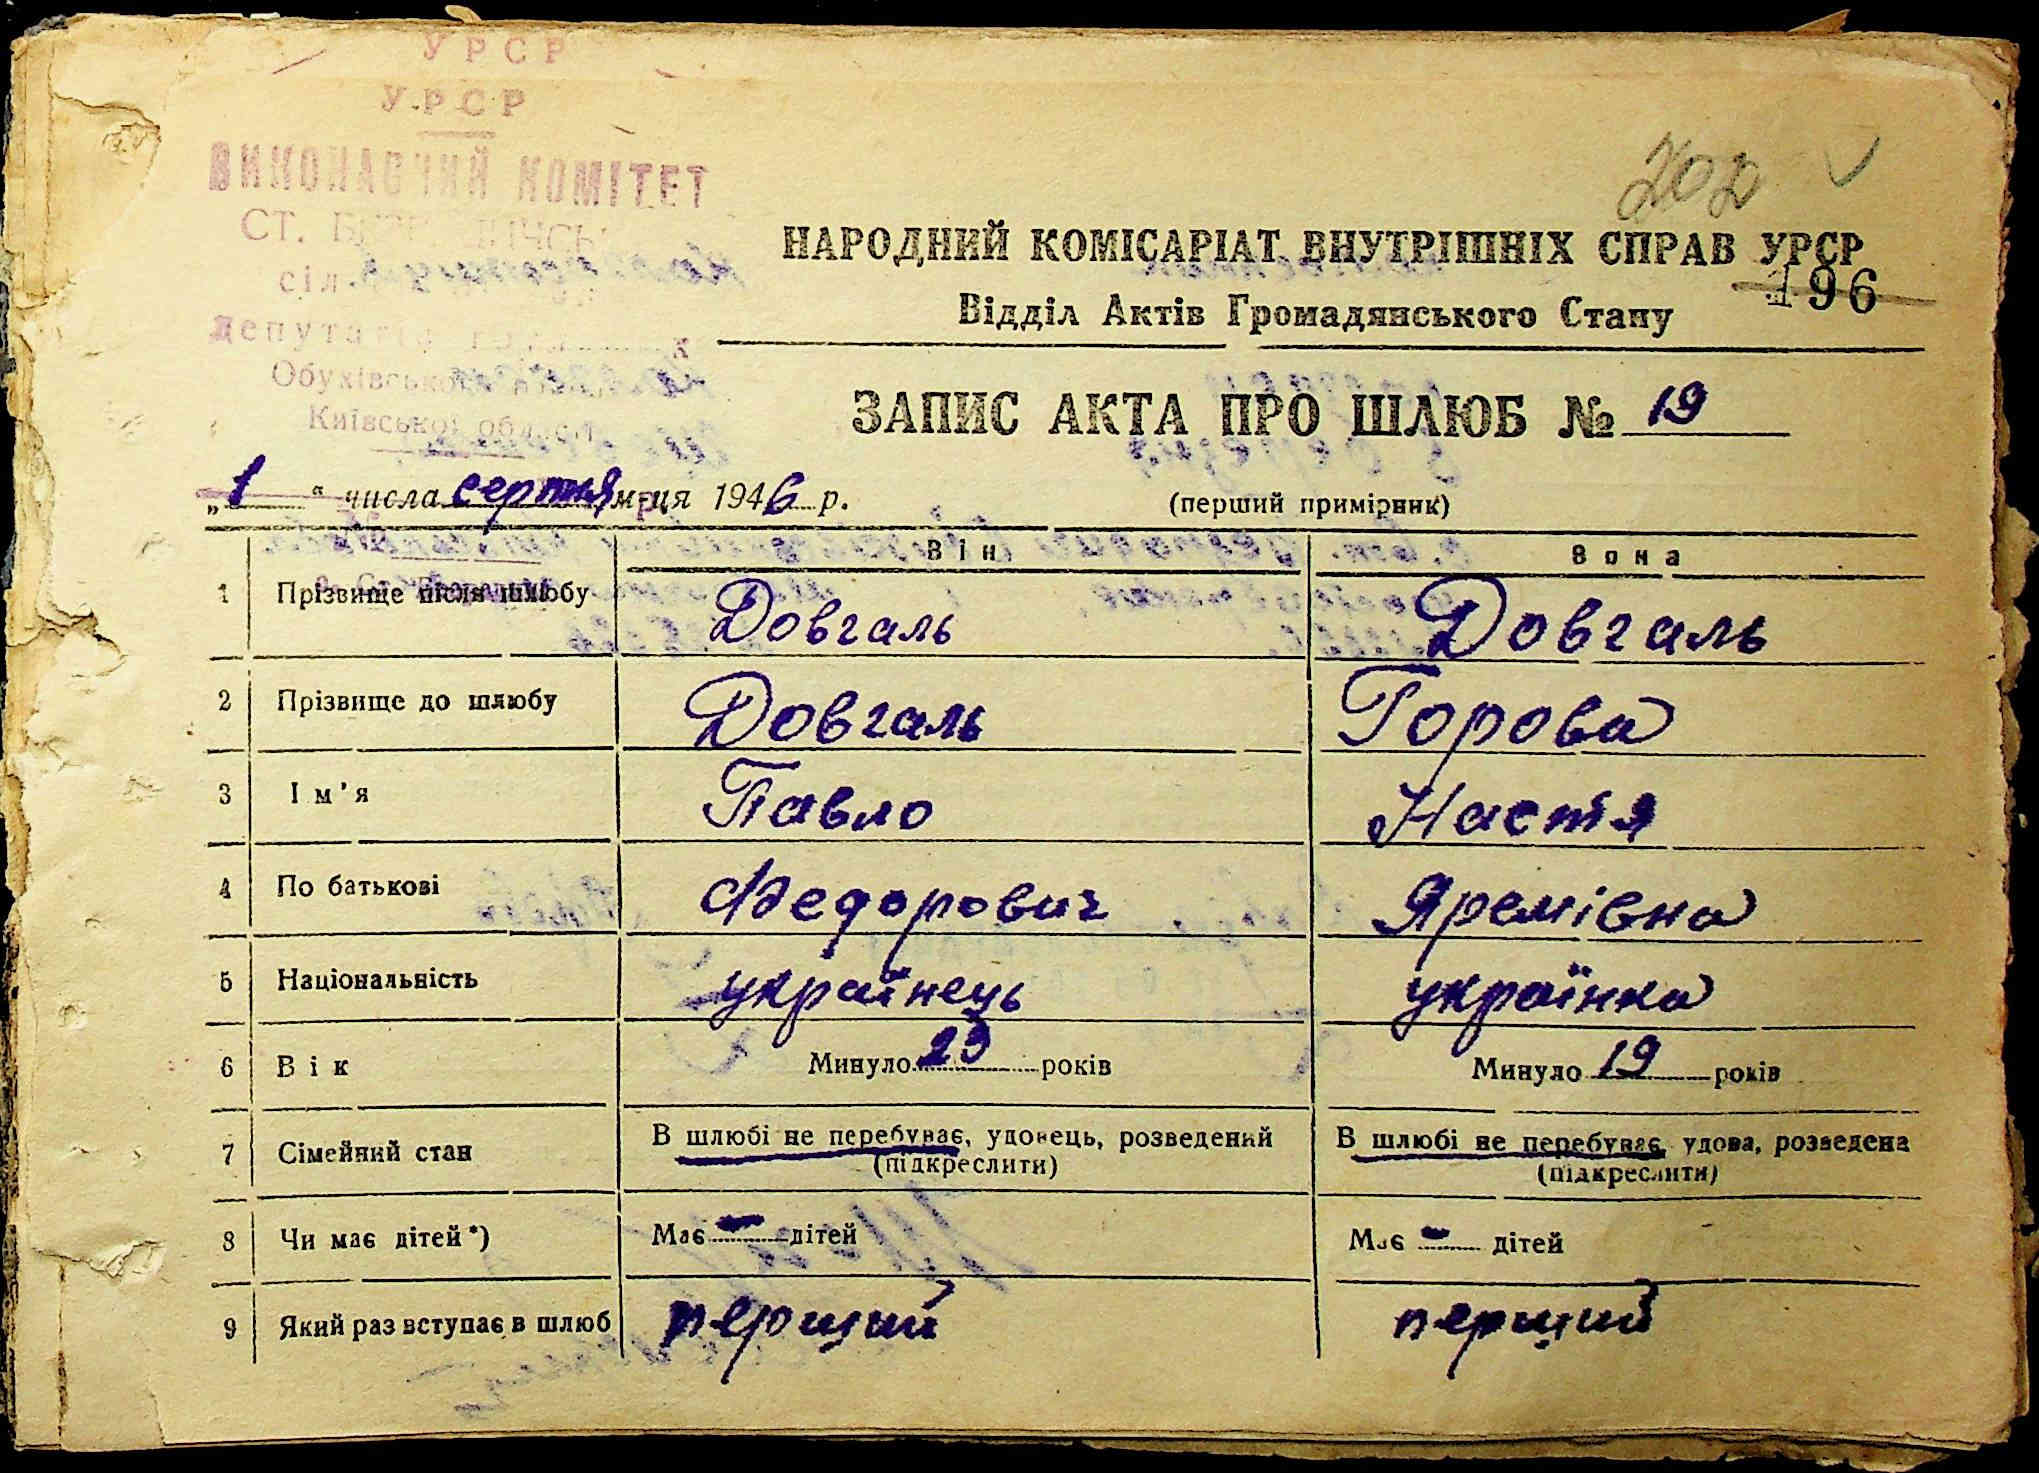 УРСР
УРСР
ВИКОНАВЧИЙ КОМІТЕТ
СТ.
сіл.
депутатів
Обухівського
Київської області
202
НАРОДНИЙ КОМІСАРІАТ ВНУТРІШНІХ СПРАВ УРСР
196
Відділ Актів Громадянського Стану
ЗАПИС АКТА ПРО ШЛЮБ № 19
„1“ числа серпня м-ця 1946 р.
(перший примірник)
Він Вона
1 Прізвище після шлюбу Довгаль Довгаль
2 Прізвище до шлюбу Довгаль Горова
3 Ім'я Павло Настя
4 По батькові Федорович Яремівна
5 Національність українець українка
6 Вік Минуло 23 років Минуло 19 років
7 Сімейний стан В шлюбі не перебуває, удовець, розведений В шлюбі не перебуває, удова, розведена
(підкреслити) (підкреслити)
8 Чи має дітей*) Має — дітей Має — дітей
9 Який раз вступає в шлюб перший перший